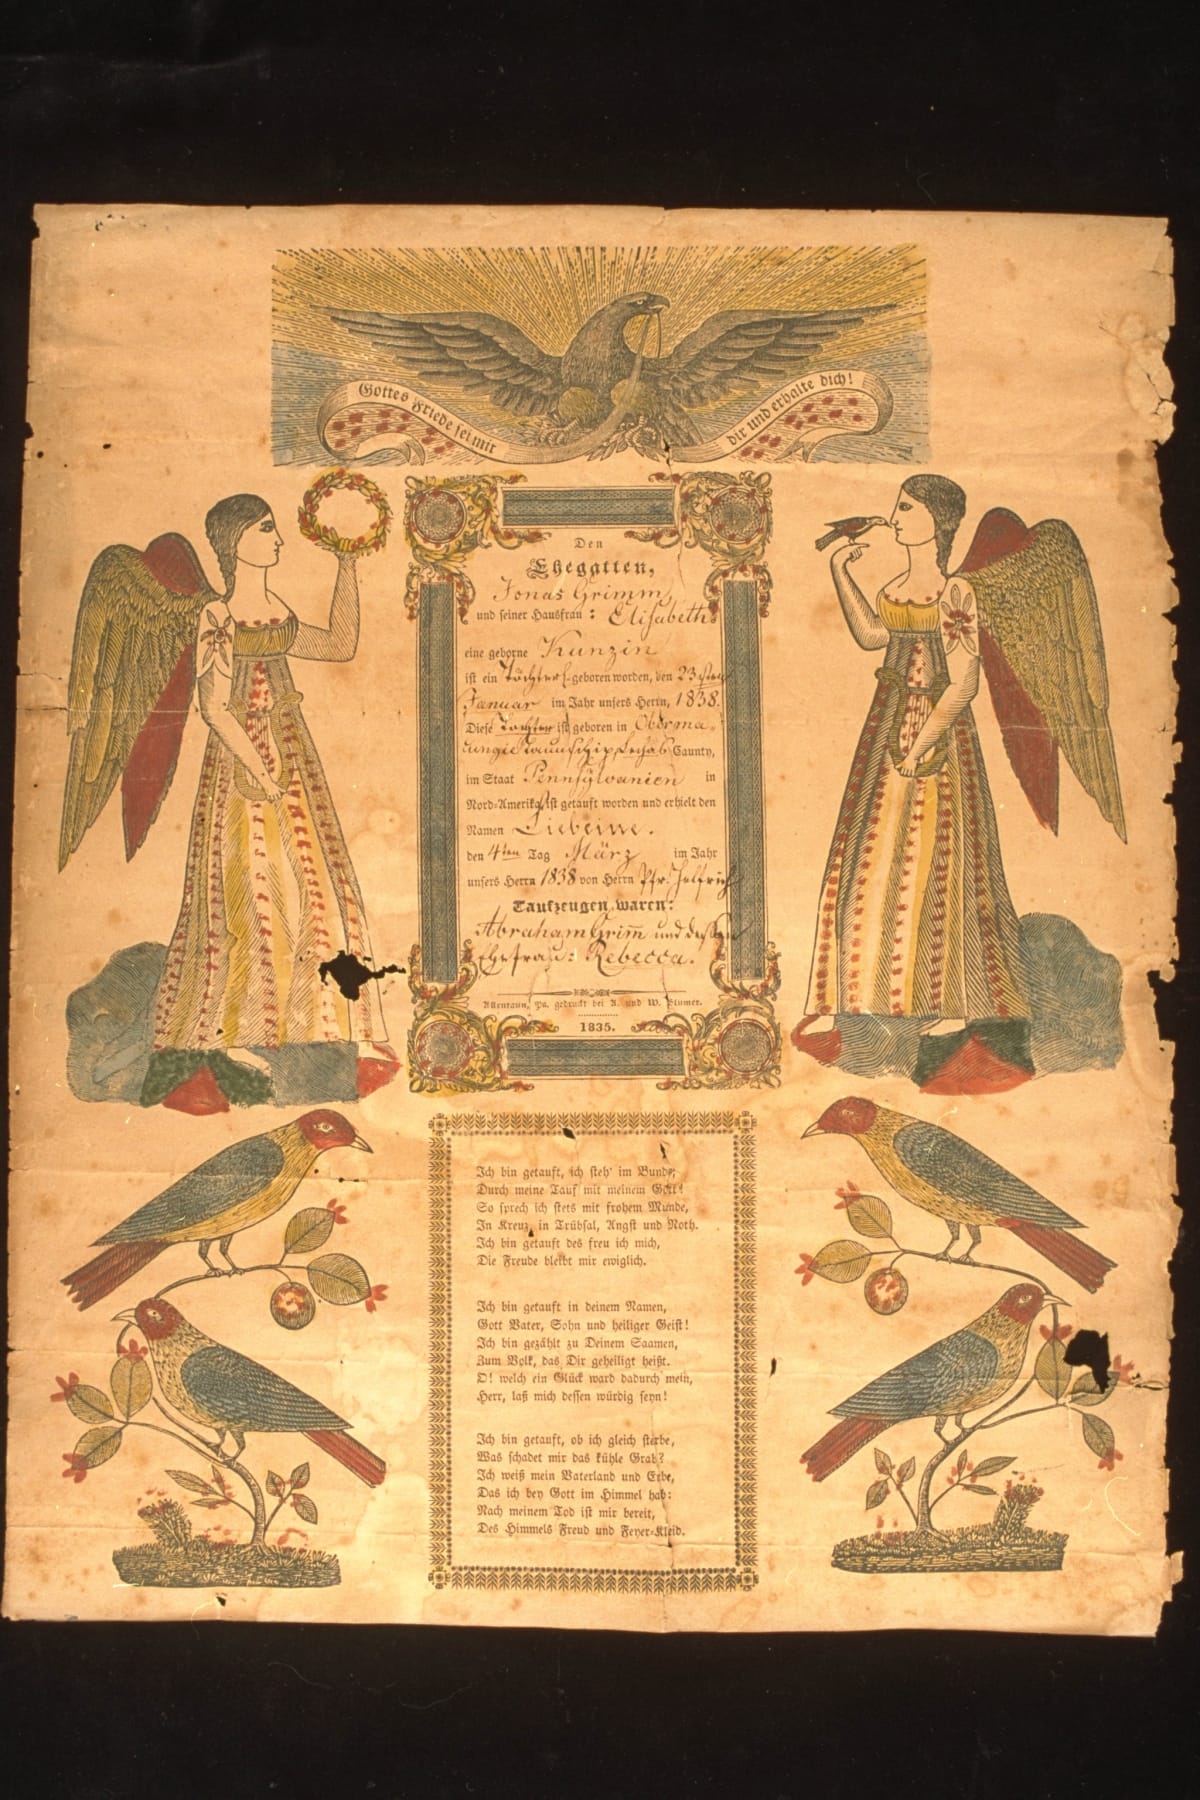 Gottes Friede sei mit
dir und erhalte dich!
Den
Ehegatten,
Jonas Grimm,
und seiner Hausfrau : Elisabeth
eine geborne Kunzin
ist ein Töchterl. geboren worden, den 23sten
Januar im Jahr unsers Herrn, 1838.
Diese Tochter ist geboren in Oberma-
ungie Taunschip Lechas Caunty,
im Staat Pennsylvanien in
Nord-Amerika, ist getauft worden und erhielt den
Namen
den 4ten Tag März im Jahr
unsers Herrn 1838 von Herrn Pfr. Helfrich
Taufzeugen waren:
Abraham Grim̅ und dessen
Ehefrau: Rebecca.
Allentaun, Pa. gedruckt bei A. und W. Blumer.
1835.
Ich bin getauft, ich steh' im Bunde,
Durch meine Tauf mit meinem Gott!
So sprech ich stets mit frohem Munde,
In Kreuz, in Trübsal, Angst und Noth.
Ich bin getauft des freu ich mich,
Die Freude bleibt mir ewiglich.
Ich bin getauft in deinem Namen,
Gott Vater, Sohn und heiliger Geist!
Ich bin gezählt zu Deinem Saamen,
Zum Volk, das Dir geheiligt heißt.
O! welch ein Glück ward dadurch mein,
Herr, laß mich dessen würdig seyn!
Ich bin getauft, ob ich gleich sterbe,
Was schadet mir das kühle Grab?
Ich weiß mein Vaterland und Erbe,
Das ich bey Gott im Himmel hab:
Nach meinem Tod ist mir bereit,
Des Himmels Freud und Feyer-Kleid.